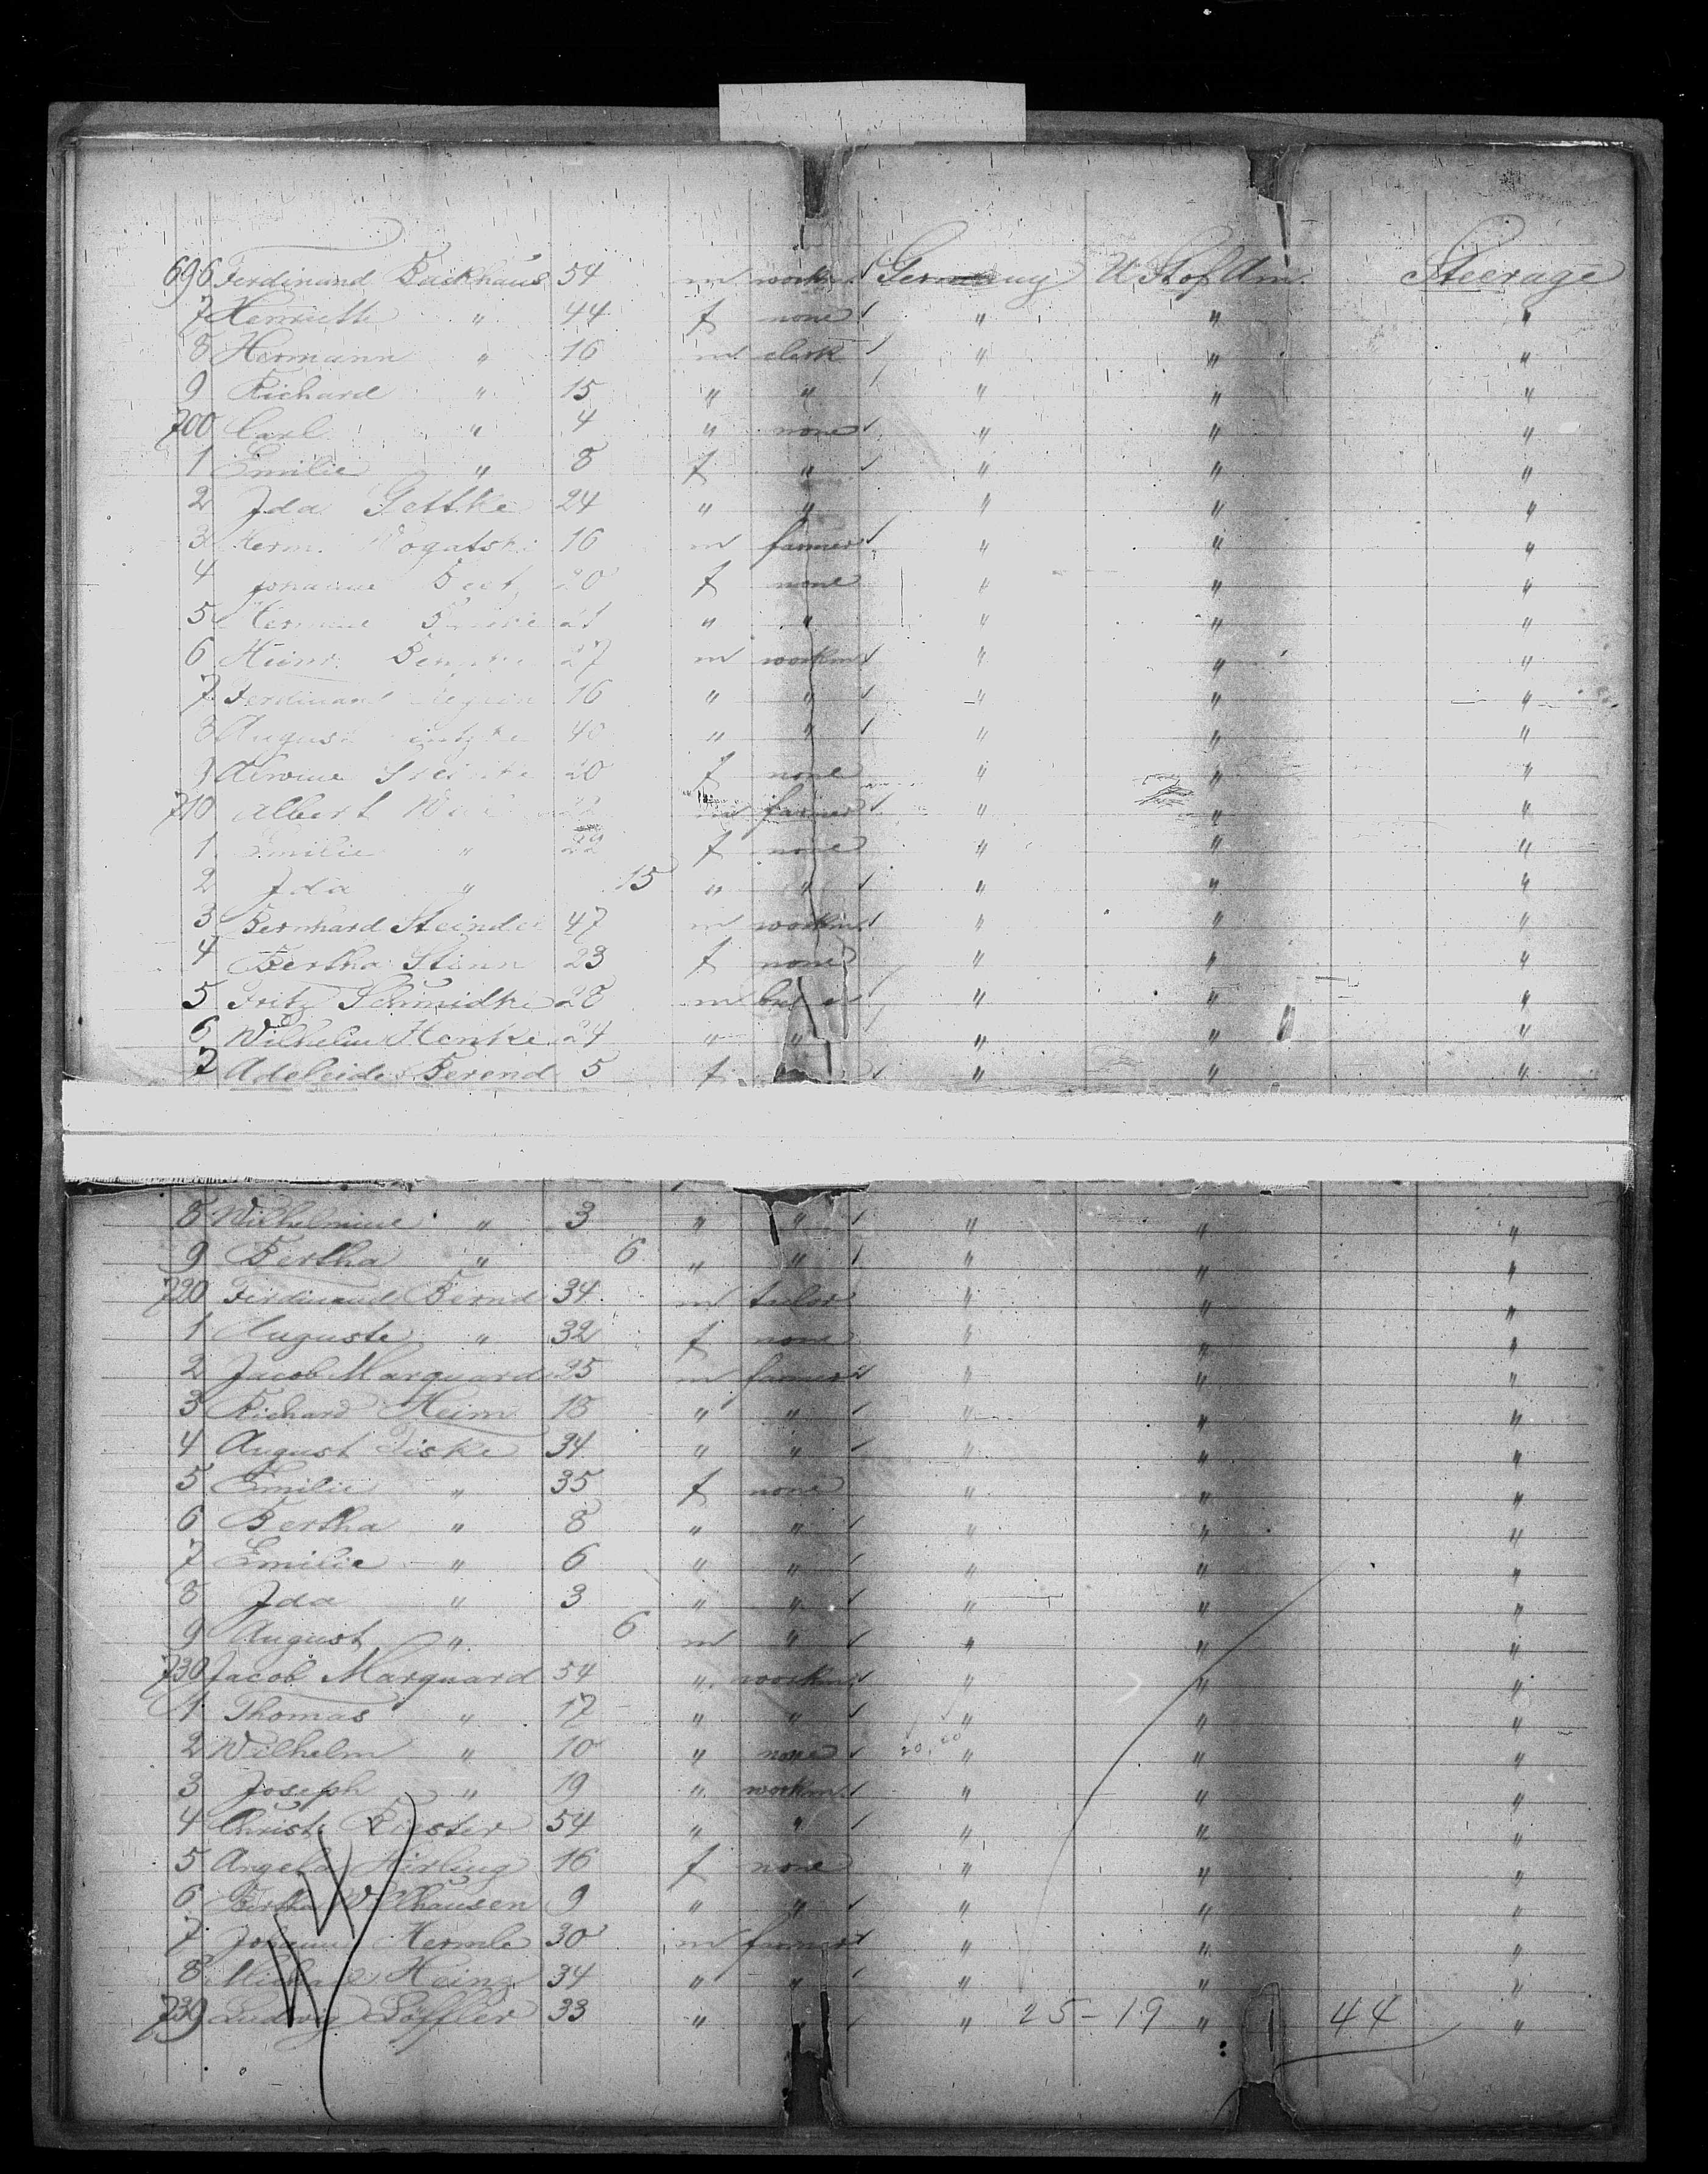 696 Ferdinand Backhaus 54 m workm. Germany U. St. of Am. Steerage
7 Henrieth " 44 f none " " "
8 Hermann " 16 m clerk " " "
9 Richard " 15 " " " " "
700 Carl " 4 " none " " "
1 Emilie " 8 f " " " "
2 Ida Gettke 24 " " " " "
3 Herm. Wogatski 16 m farmer " " "
4 Johanne 20 f none " " "
5 Hermine 21 " " " " "
6 Heinr. 27 m workm " " "
7 Ferdinand 16 " " " " "
8 August 40 " " " " "
9 20 f none " " "
710 Albert m farmer " " "
1 Emilie " 22 f none " " "
2 Ida " 15 " " " " "
3 Bernhard 47 m workm. " " "
4 Bertha Stinn 23 f none " " "
5 Fritz Schmidke 28 m " " "
6 Wilhelm Henke 24 " " " " "
7 Adeleide Berend 5 f " " "
8 Wilhelmine " 3 " " " " "
9 Bertha " 6 " " " " "
720 Ferdinand Bernd 34 m tailor " " "
1 Auguste " 32 f none " " "
2 Jacob Marquard 25 m farmer " " "
3 Richard Heim 18 " " " " "
4 August Fiske 34 " " " " "
5 Emilie " 35 f none " " "
6 Bertha " 8 " " " " "
7 Emilie " 6 " " " " "
8 Ida " 3 " " " " "
9 August " 6 m " " " "
730 Jacob Marquard 54 " workm. " " "
1 Thomas " 17 " " " " "
2 Wilhelm " 10 " none " " "
3 Joseph " 19 " workm. " " "
4 Christ. 54 " " " " "
5 Angela Hirling 16 f none " " "
6 Bertha Wilkhausen 9 " " " " "
7 Johann Hermle 30 m farmer " " "
8 Michael Heing 34 " " " " "
739 Ludwig Löffler 33 " " " 25-19 " 44 "